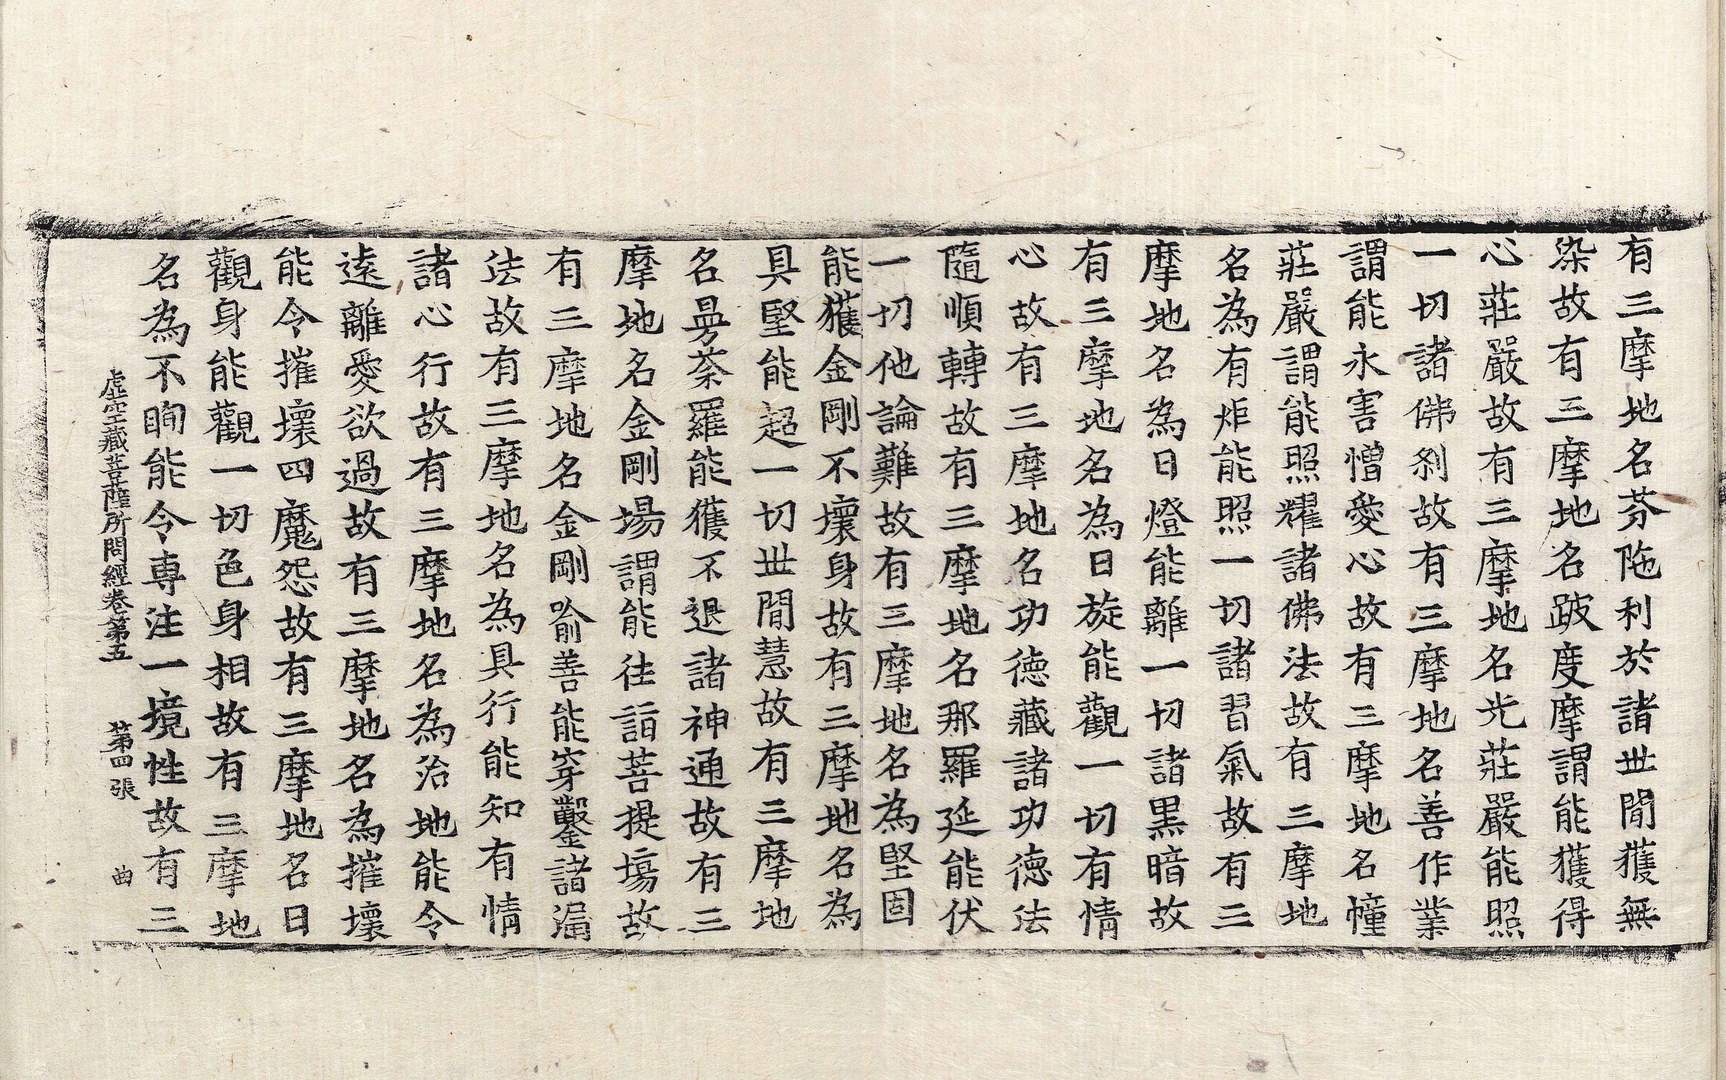 有三摩地名芬陁利於諸丗間獲無
染故有三摩地名跛度摩謂能獲得
心莊嚴故有三摩地名光莊嚴能照
一切諸佛刹故有三摩地名善作業
謂能永害憎愛心故有三摩地名幢
莊嚴謂能照耀諸佛法故有三摩地
名為有炬能照一切諸習氣故有三
摩地名為日燈能離一切諸黑暗故
有三摩地名為日旋能觀一切有情
心故有三摩地名功德藏諸功德法
隨順轉故有三摩地名那羅延能伏
一切他論難故有三摩地名為堅固
能獲金剛不壞身故有三摩地名為
具堅能超一切丗間慧故有三摩地
名曼荼羅能獲不退諸神通故有三
摩地名金剛場謂能往詣菩提場故
有三摩地名金剛喻善能穿鑿諸漏
法故有三摩地名為具行能知有情
諸心行故有三摩地名為治地能令
遠離愛欲過故有三摩地名為摧壞
能令摧壞四魔怨故有三摩地名日
觀身能觀一切色身相故有三摩地
名為不眴能令専注一境性故有三
虛空藏菩薩所問經卷第五 第四張 曲